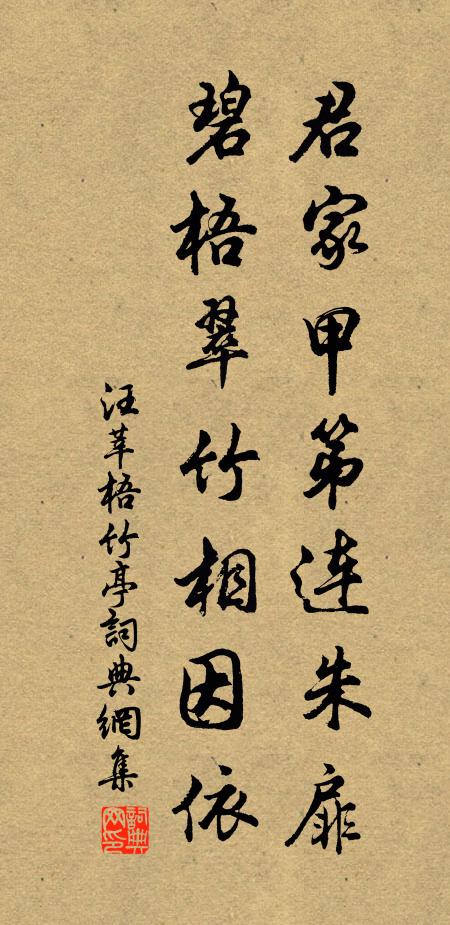 君家甲第連朱扉
碧梧翠竹相因依
汪莘梧竹亭詞典網集
詞典網印